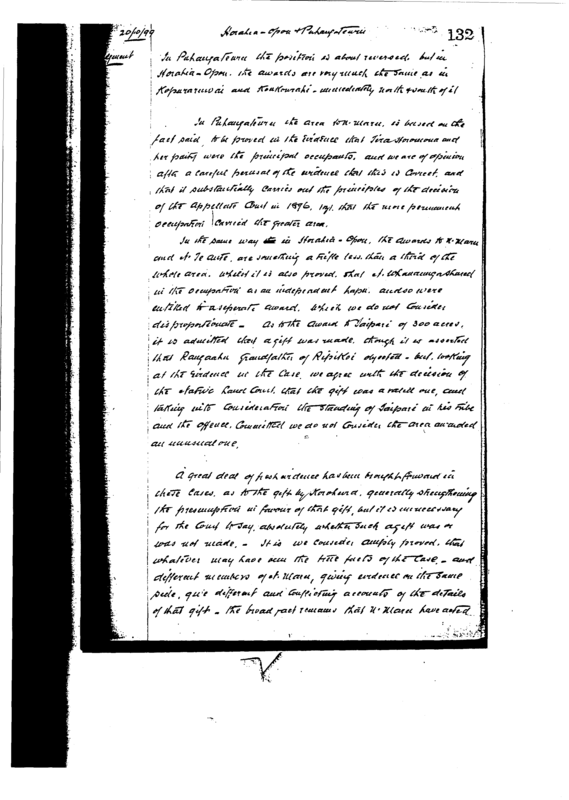 20/10/99
Horahia-Opou & Pahangatoura
132
In Pukangatoura the position is about reversed. but in
Horahia-Opou. the awards are very much the same as in
and Koukourahi - immediately north & south of it
In Puhangatoura the area to N. Maru, is based on the
fact said to be proved in the Evidence that and
her party were the principal occupants, and we are of opinion
after a careful perusal of the evidence that this is Correct, and
that it substantially Carries out the principles of the decision
of the Appellate Court in 1896, that the more permanent
occupation Carried the greater area.
In the same way in Horahia-Opou. the awards to N. Maru
and N. Te Aute, are something a trifle less than a third of the
whole area. whilst it is also proved, that N. Whanaunga shared
in the occupation as an independent hapu. and so were
entitled to a seperate award. which we do not Consider
disproportionate - As to the award to Taipari of 300 acres,
it is admitted that a gift was made. though it is asserted
that Rangaahu Grandfather of objected - but looking
at the Evidence in the Case, we agree with the decision of
the Native Land Court. that the gift was a valid one, and
taking into Consideration the standing of Taipari in his tribe
and the offence. Committed we do not Consider the area awarded
an unusual one,
A great deal of fresh evidence has been brought forward in
these Cases, as to the gift by generally strengthening
the presumption in favour of that gift, but it is unnecessary
for the Court to say, absolutely whether such a gift was or
was not made, - It is we consider amply proved, that
whatever may have been the true facts of the Case, - and
different members of N. Maru, giving evidence on the same
side, give different and Conflicting accounts of the details
of that gift - the broad fact remains that N. Maru have acted